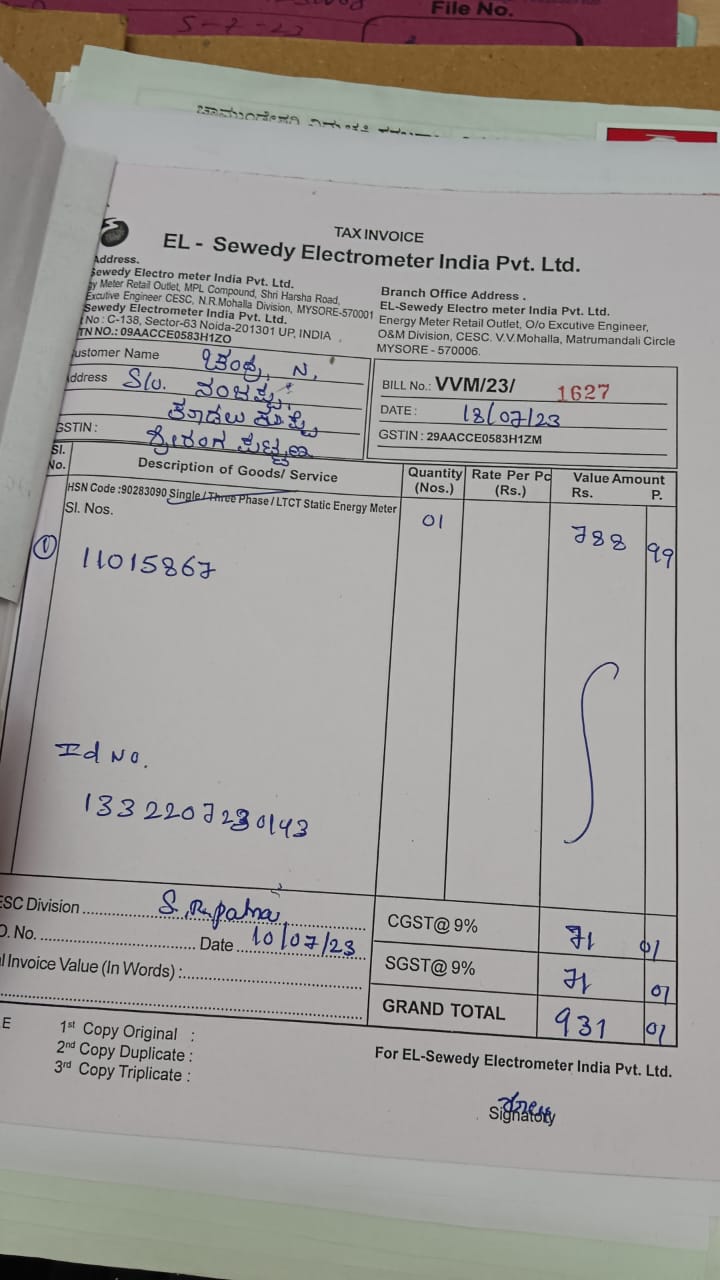 File No.
5-7-23
TAX INVOICE
EL - Sewedy Electrometer India Pvt. Ltd.
Address.
Sewedy Electro meter India Pvt. Ltd.
gy Meter Retail Outlet, MPL Compound, Shri Harsha Road,
Excutive Engineer CESC, N.R.Mohalla Division, MYSORE-570001
Sewedy Electrometer India Pvt. Ltd.
No : C-138, Sector-63 Noida-201301 UP, INDIA
TN NO.: 09AACCE0583H1ZO
Branch Office Address .
EL-Sewedy Electro meter India Pvt. Ltd.
Energy Meter Retail Outlet, O/o Excutive Engineer,
O&M Division, CESC. V.V.Mohalla, Matrumandali Circle
MYSORE - 570006.
ustomer Name ಚಂದ್ರು, N,
ddress S/o. ನಂಜಪ್ಪ,
GSTIN : ಶ್ರೀರಂಗ ಪಟ್ಟಣ
BILL No.: VVM/23/ 1627
DATE : 18/07/23
GSTIN : 29AACCE0583H1ZM
Sl. No. Description of Goods/ Service Quantity (Nos.) Rate Per Pc (Rs.) Value Amount Rs. P.
HSN Code :90283090 Single / Three Phase / LTCT Static Energy Meter
Sl. Nos. 01 788 99
1 11015867
Id No.
1332207230143
ESC Division S.R.patna
O. No. Date 10/07/23
l Invoice Value (In Words) :
CGST@ 9% 71 01
SGST@ 9% 71 01
GRAND TOTAL 931 01
E 1st Copy Original :
2nd Copy Duplicate :
3rd Copy Triplicate :
For EL-Sewedy Electrometer India Pvt. Ltd.
Signatory